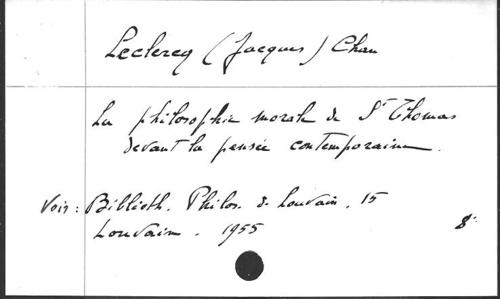 Leclercq (Jacques) Chan
La philosophie morale de St Thomas
devant la pensée contemporaine.
Voir : Biblioth. Philos. de Louvain. 15
Louvain. 1955 8°